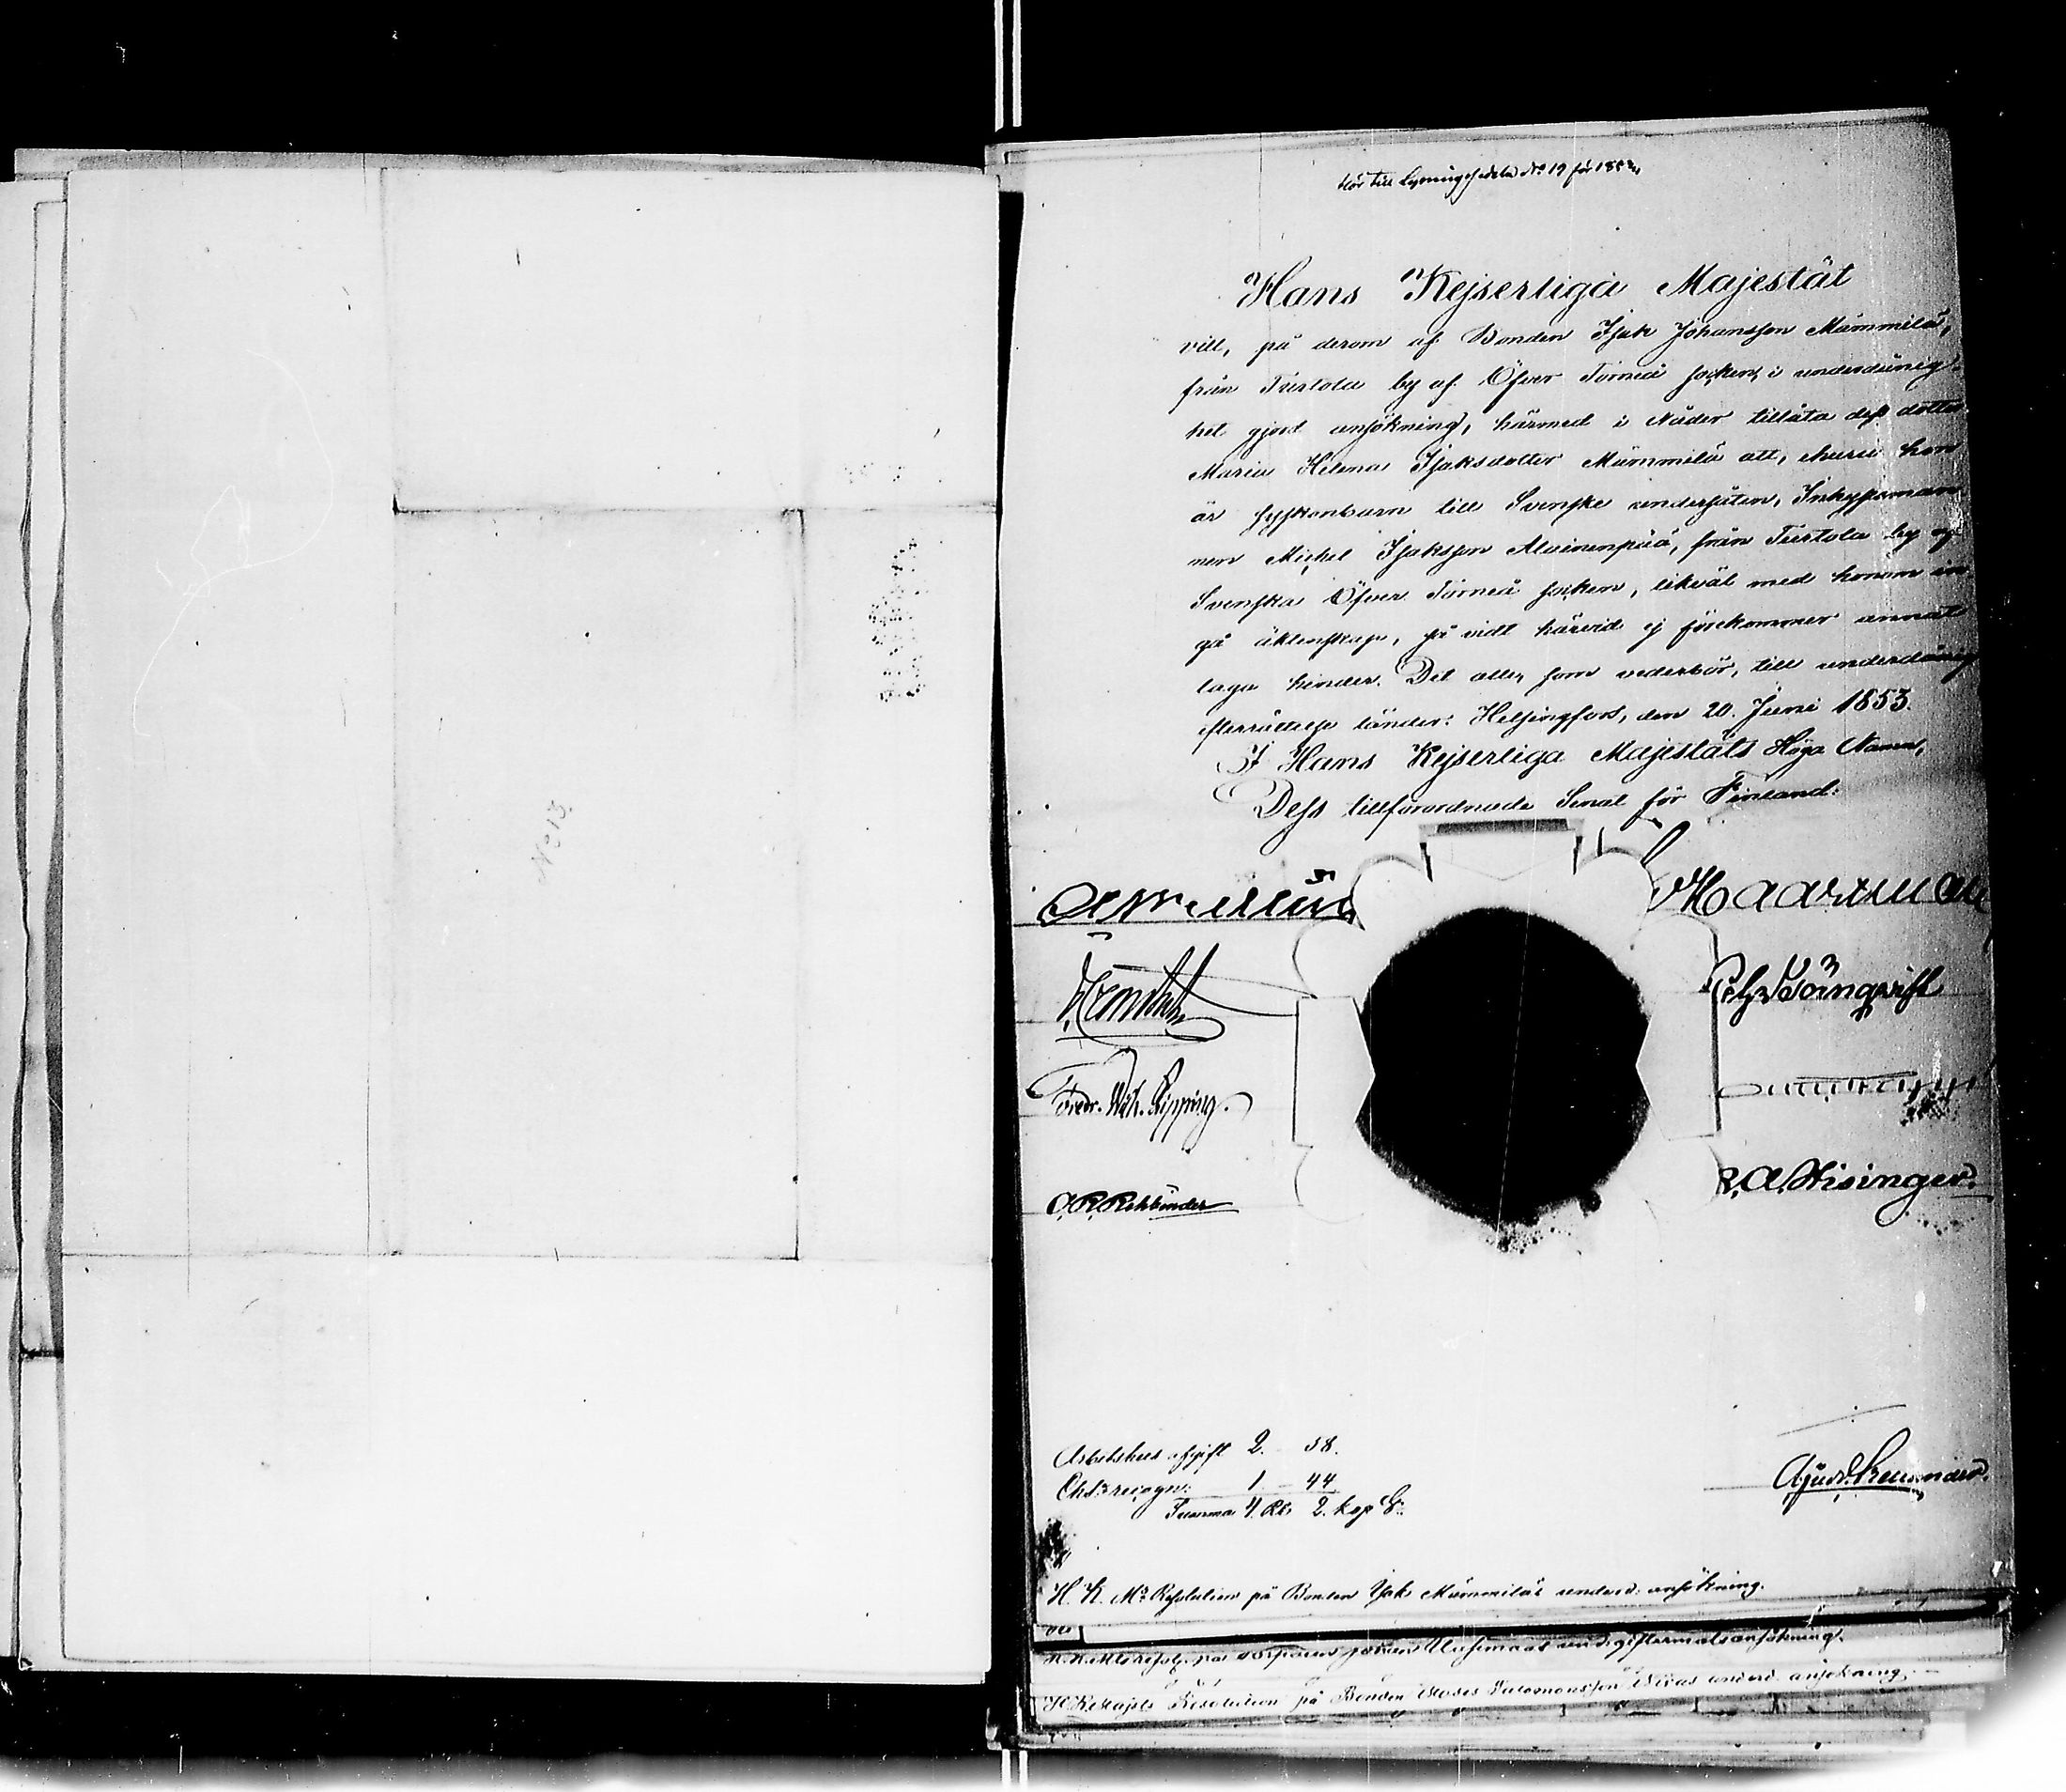 No 13.
Hör till Lysningssedeln No 19 för 1853.
Hans Kejserliga Majestät
vill, på derom af Bonden Isak Johansson Mämmilä,
från Turtola by af Öfver Torneå socken, i underdånig-
het gjord ansökning, härmed i Nåder tillåta dess dotter
Maria Helena Isaksdotter Mämmilä att, ehuru hon
är syskonbarn till Svenske undersåten, Inhysesman-
nen Michel Isaksson Alainenpää, från Turtola by af
Svenska Öfver Torneå socken, likväl med honom in-
gå äktenskap, så vidt härvid ej förekommer annat
laga hinder. Det allom som vederbör, till underdånig
efterrättelse länder. Helsingfors, den 20. Juni 1853.
I Hans Kejserliga Majestäts Höga Namn,
Dess tillförordnade Senat för Finland:
Haartman
Törnqvist
Fredr. Wilh. Pipping.
R. A. Hisinger.
O. R. Rehbinder
Arbetshus afgift 2. 58.
Chts recogn: 1 - 44
Summa 4 Rb 2. kop S:
H. K. Ms Resolution på Bonden Isak Mämmiläs underd. ansökning.
H. K. Majts Resolution på Bonden Moses Salomonsson underd. ansökning